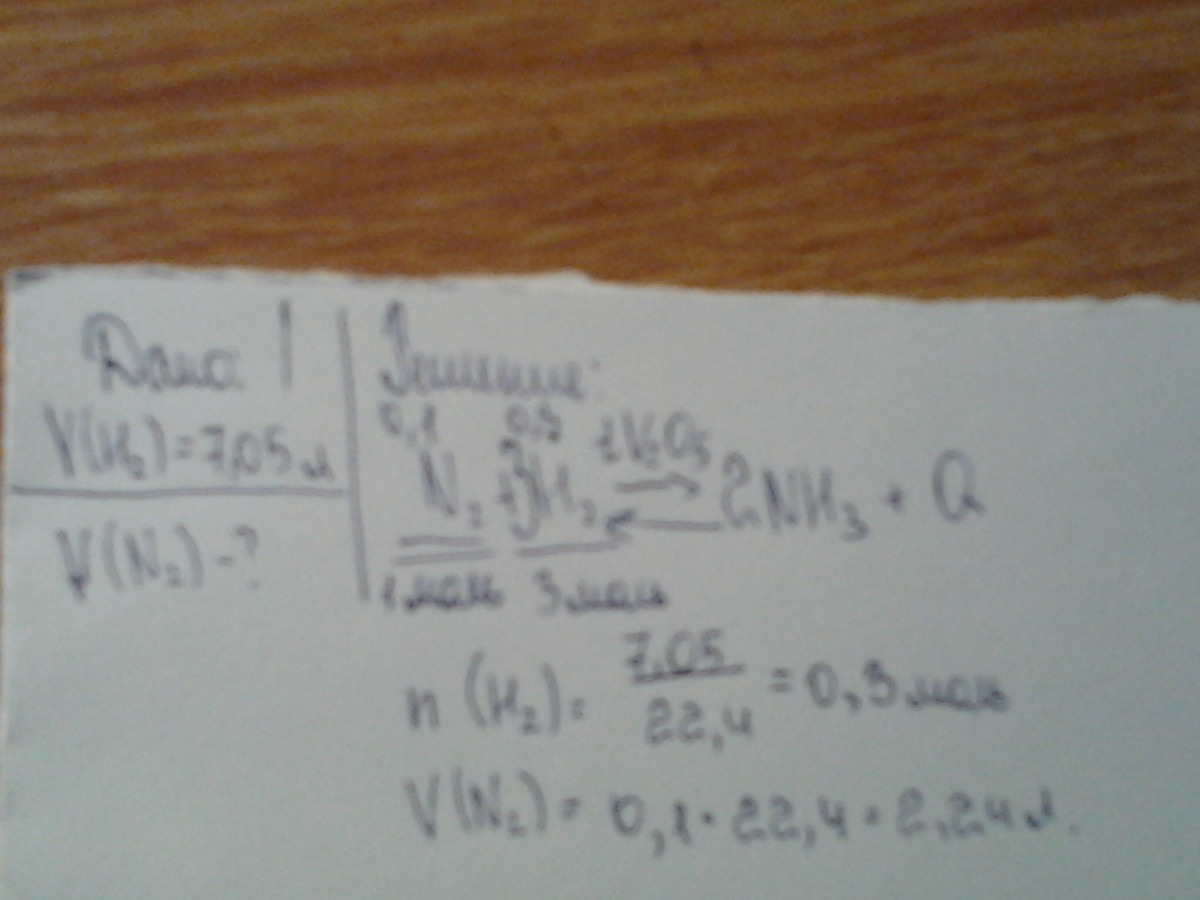 Дано:
V(H₂)=7,05 л
V(N₂)-?
Решение:
0,1 0,3
N₂ + 3H₂ ⇄ 2NH₃ + Q
1 моль 3 моль
n (H₂) = 7,05 / 22,4 = 0,3 моль
V(N₂) = 0,1 · 22,4 = 2,24 л.